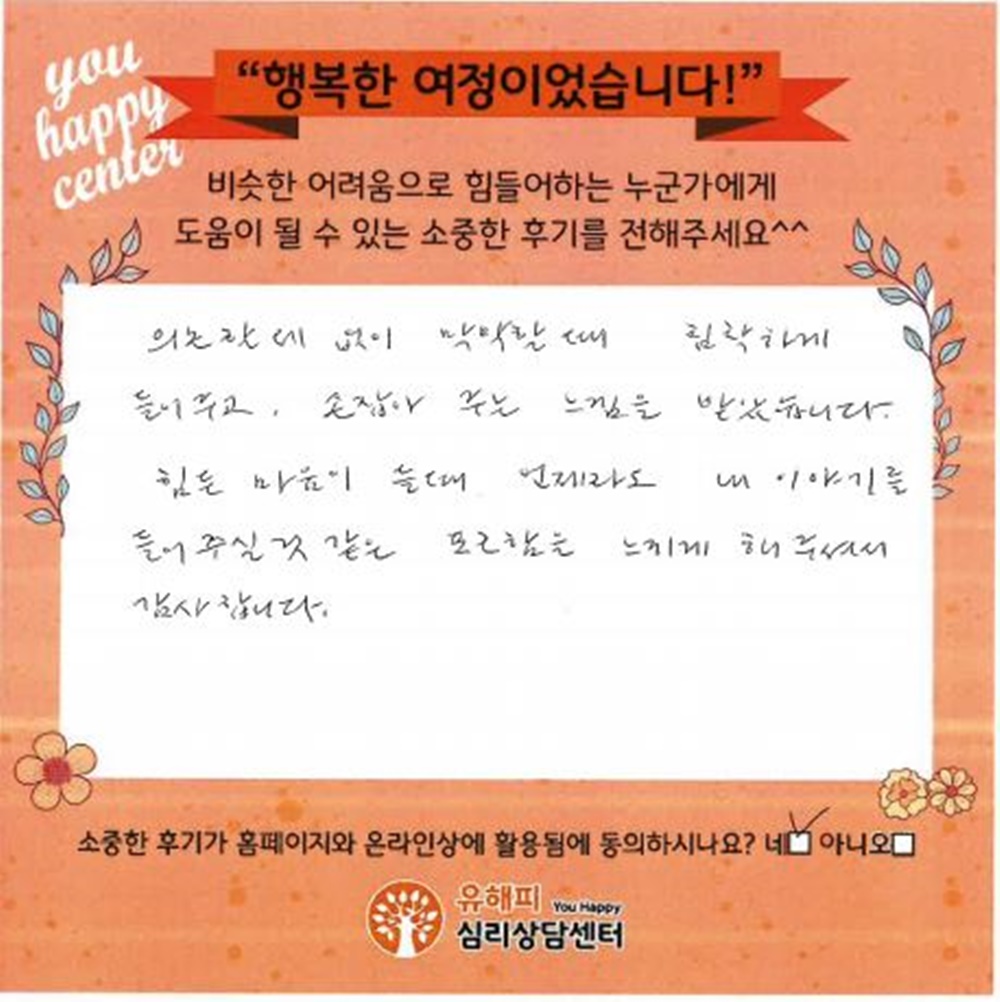 you
happy
center
“행복한 여정이었습니다!”
비슷한 어려움으로 힘들어하는 누군가에게
도움이 될 수 있는 소중한 후기를 전해주세요^^
의논할데 없이 막막할 때
들어주고, 손잡아 주는 느낌을 받았습니다.
힘든 마음이 들때 언제라도 내 이야기를
들어주실것 같은 포근함을 느끼게 해 주셔서
감사합니다.
소중한 후기가 홈페이지와 온라인상에 활용됨에 동의하시나요? 네 아니오
유해피 You Happy
심리상담센터